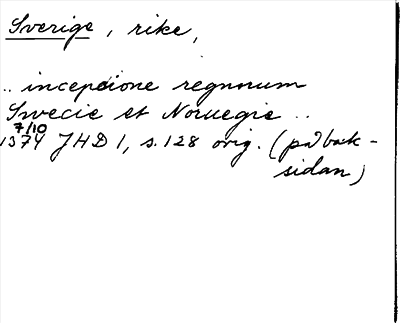 Sverige, rike,
.. incepcione regnorum
Swecie et Noruegie ..
7/10
1374 JHD 1, s. 128 orig. (på bak-
sidan)